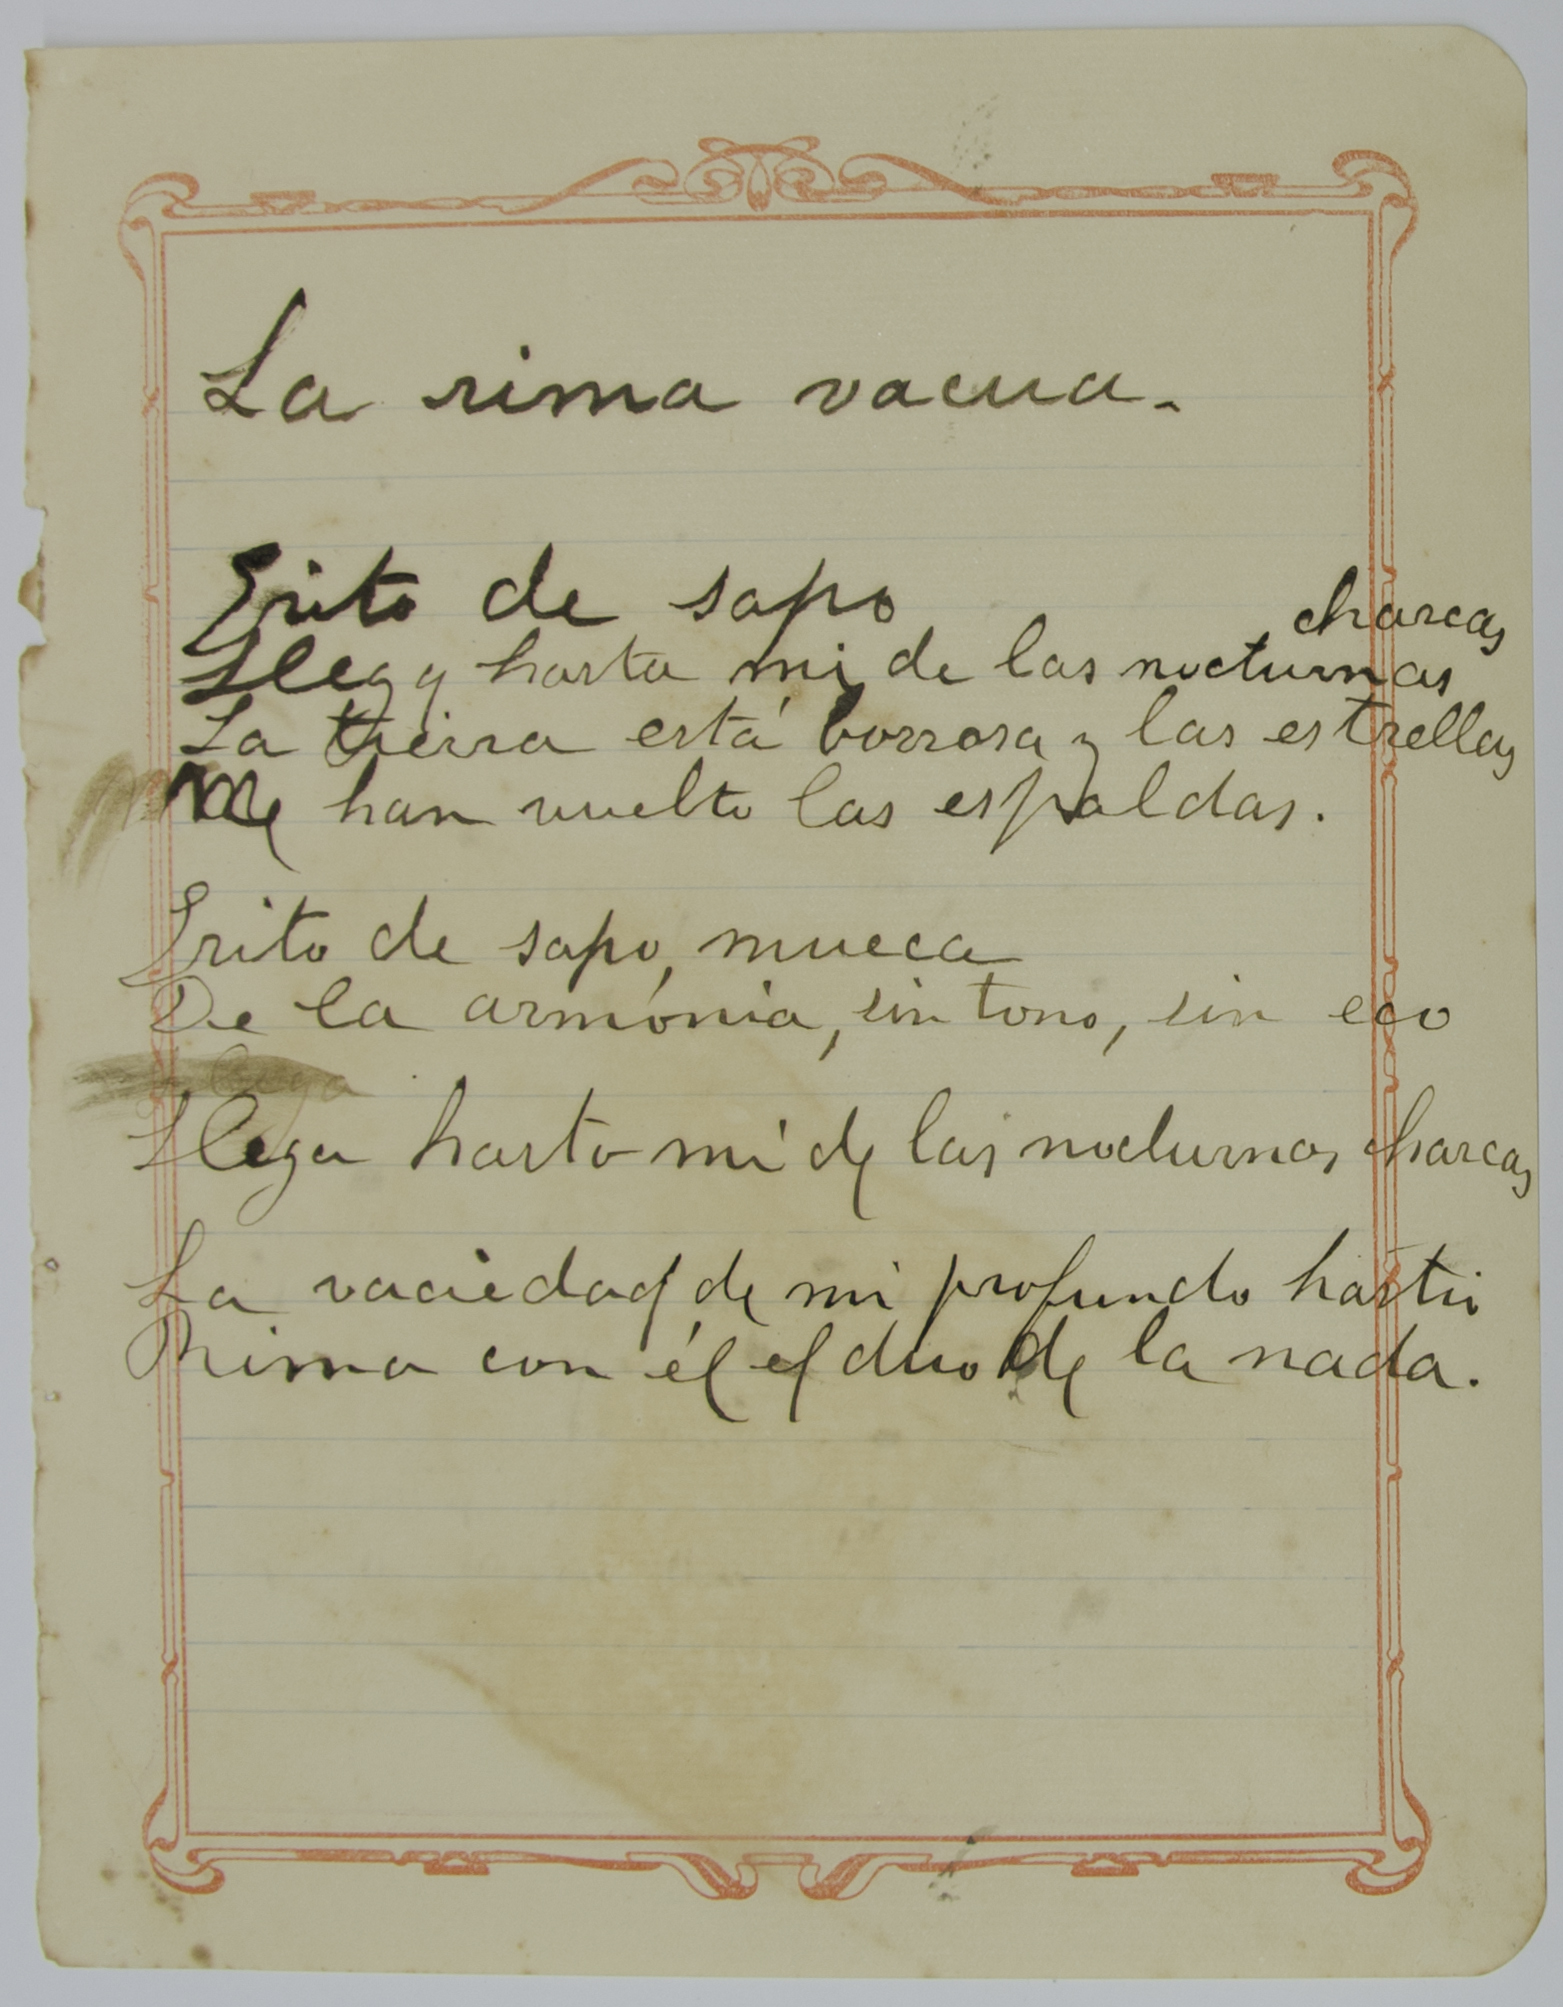 La rima vacua.
Grito de sapo
Llega hasta mi de las nocturnas charcas
La tierra está borrosa y las estrellas
Me han vuelto las espaldas.
Grito de sapo, mueca
De la armónia, sin tono, sin eco
llega
Llega hasta mí de las nocturnas charcas
La vaciedad de mi profundo hastio
Rima con él el duo de la nada.